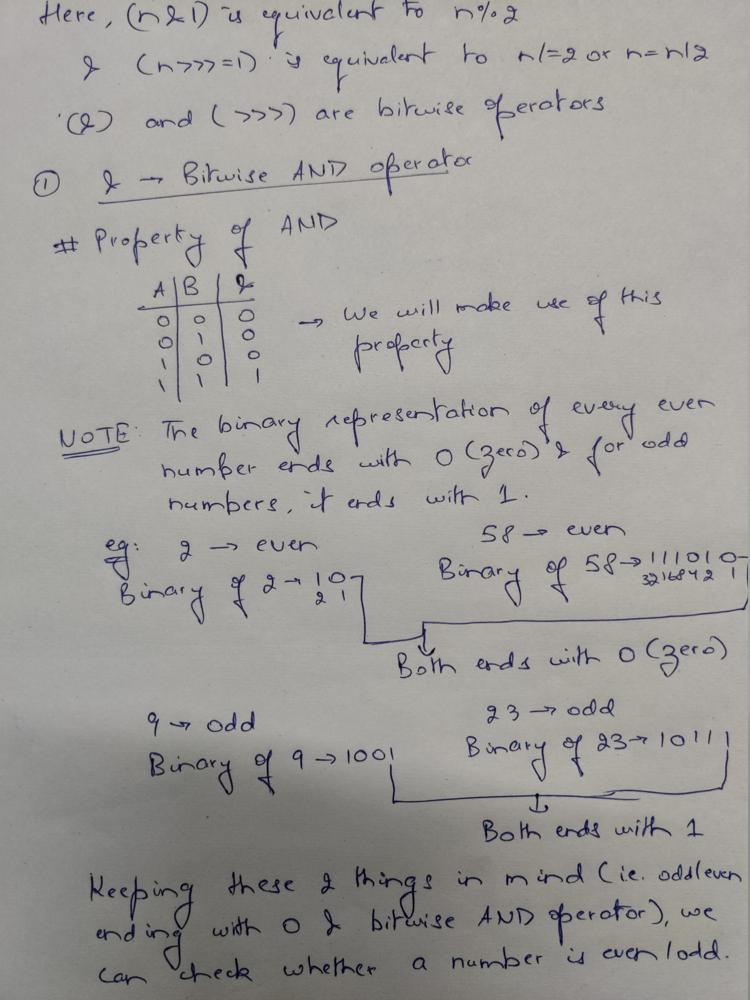 Here, (n&1) is equivalent to n%2
& (n>>>=1) is equivalent to n/=2 or n=n/2
(&) and (>>>) are bitwise operators
① & → Bitwise AND operator
# Property of AND
A | B | &
0 | 0 | 0
0 | 1 | 0
1 | 0 | 0
1 | 1 | 1
→ We will make use of this
property
NOTE: The binary representation of every even
number ends with 0 (zero) & for odd
numbers, it ends with 1.
eg: 2 → even
Binary of 2 → 10
2 1
58 → even
Binary of 58 → 111010
32 16 8 4 2 1
Both ends with 0 (zero)
9 → odd
Binary of 9 → 1001
23 → odd
Binary of 23 → 10111
Both ends with 1
Keeping these 2 things in mind (ie. odd/even
ending with 0 & bitwise AND operator), we
can check whether a number is even/odd.